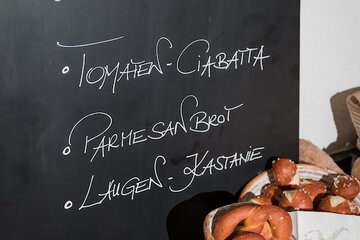 TOMATEN-CIABATTA
PARMESANBROT
LAUGEN-KASTANIE